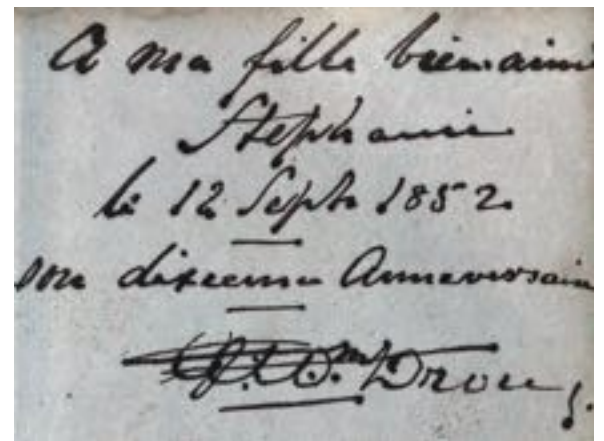 A ma fille bien aimé
Stephanie
le 12 Sept 1852
son dixieme Anneversaire